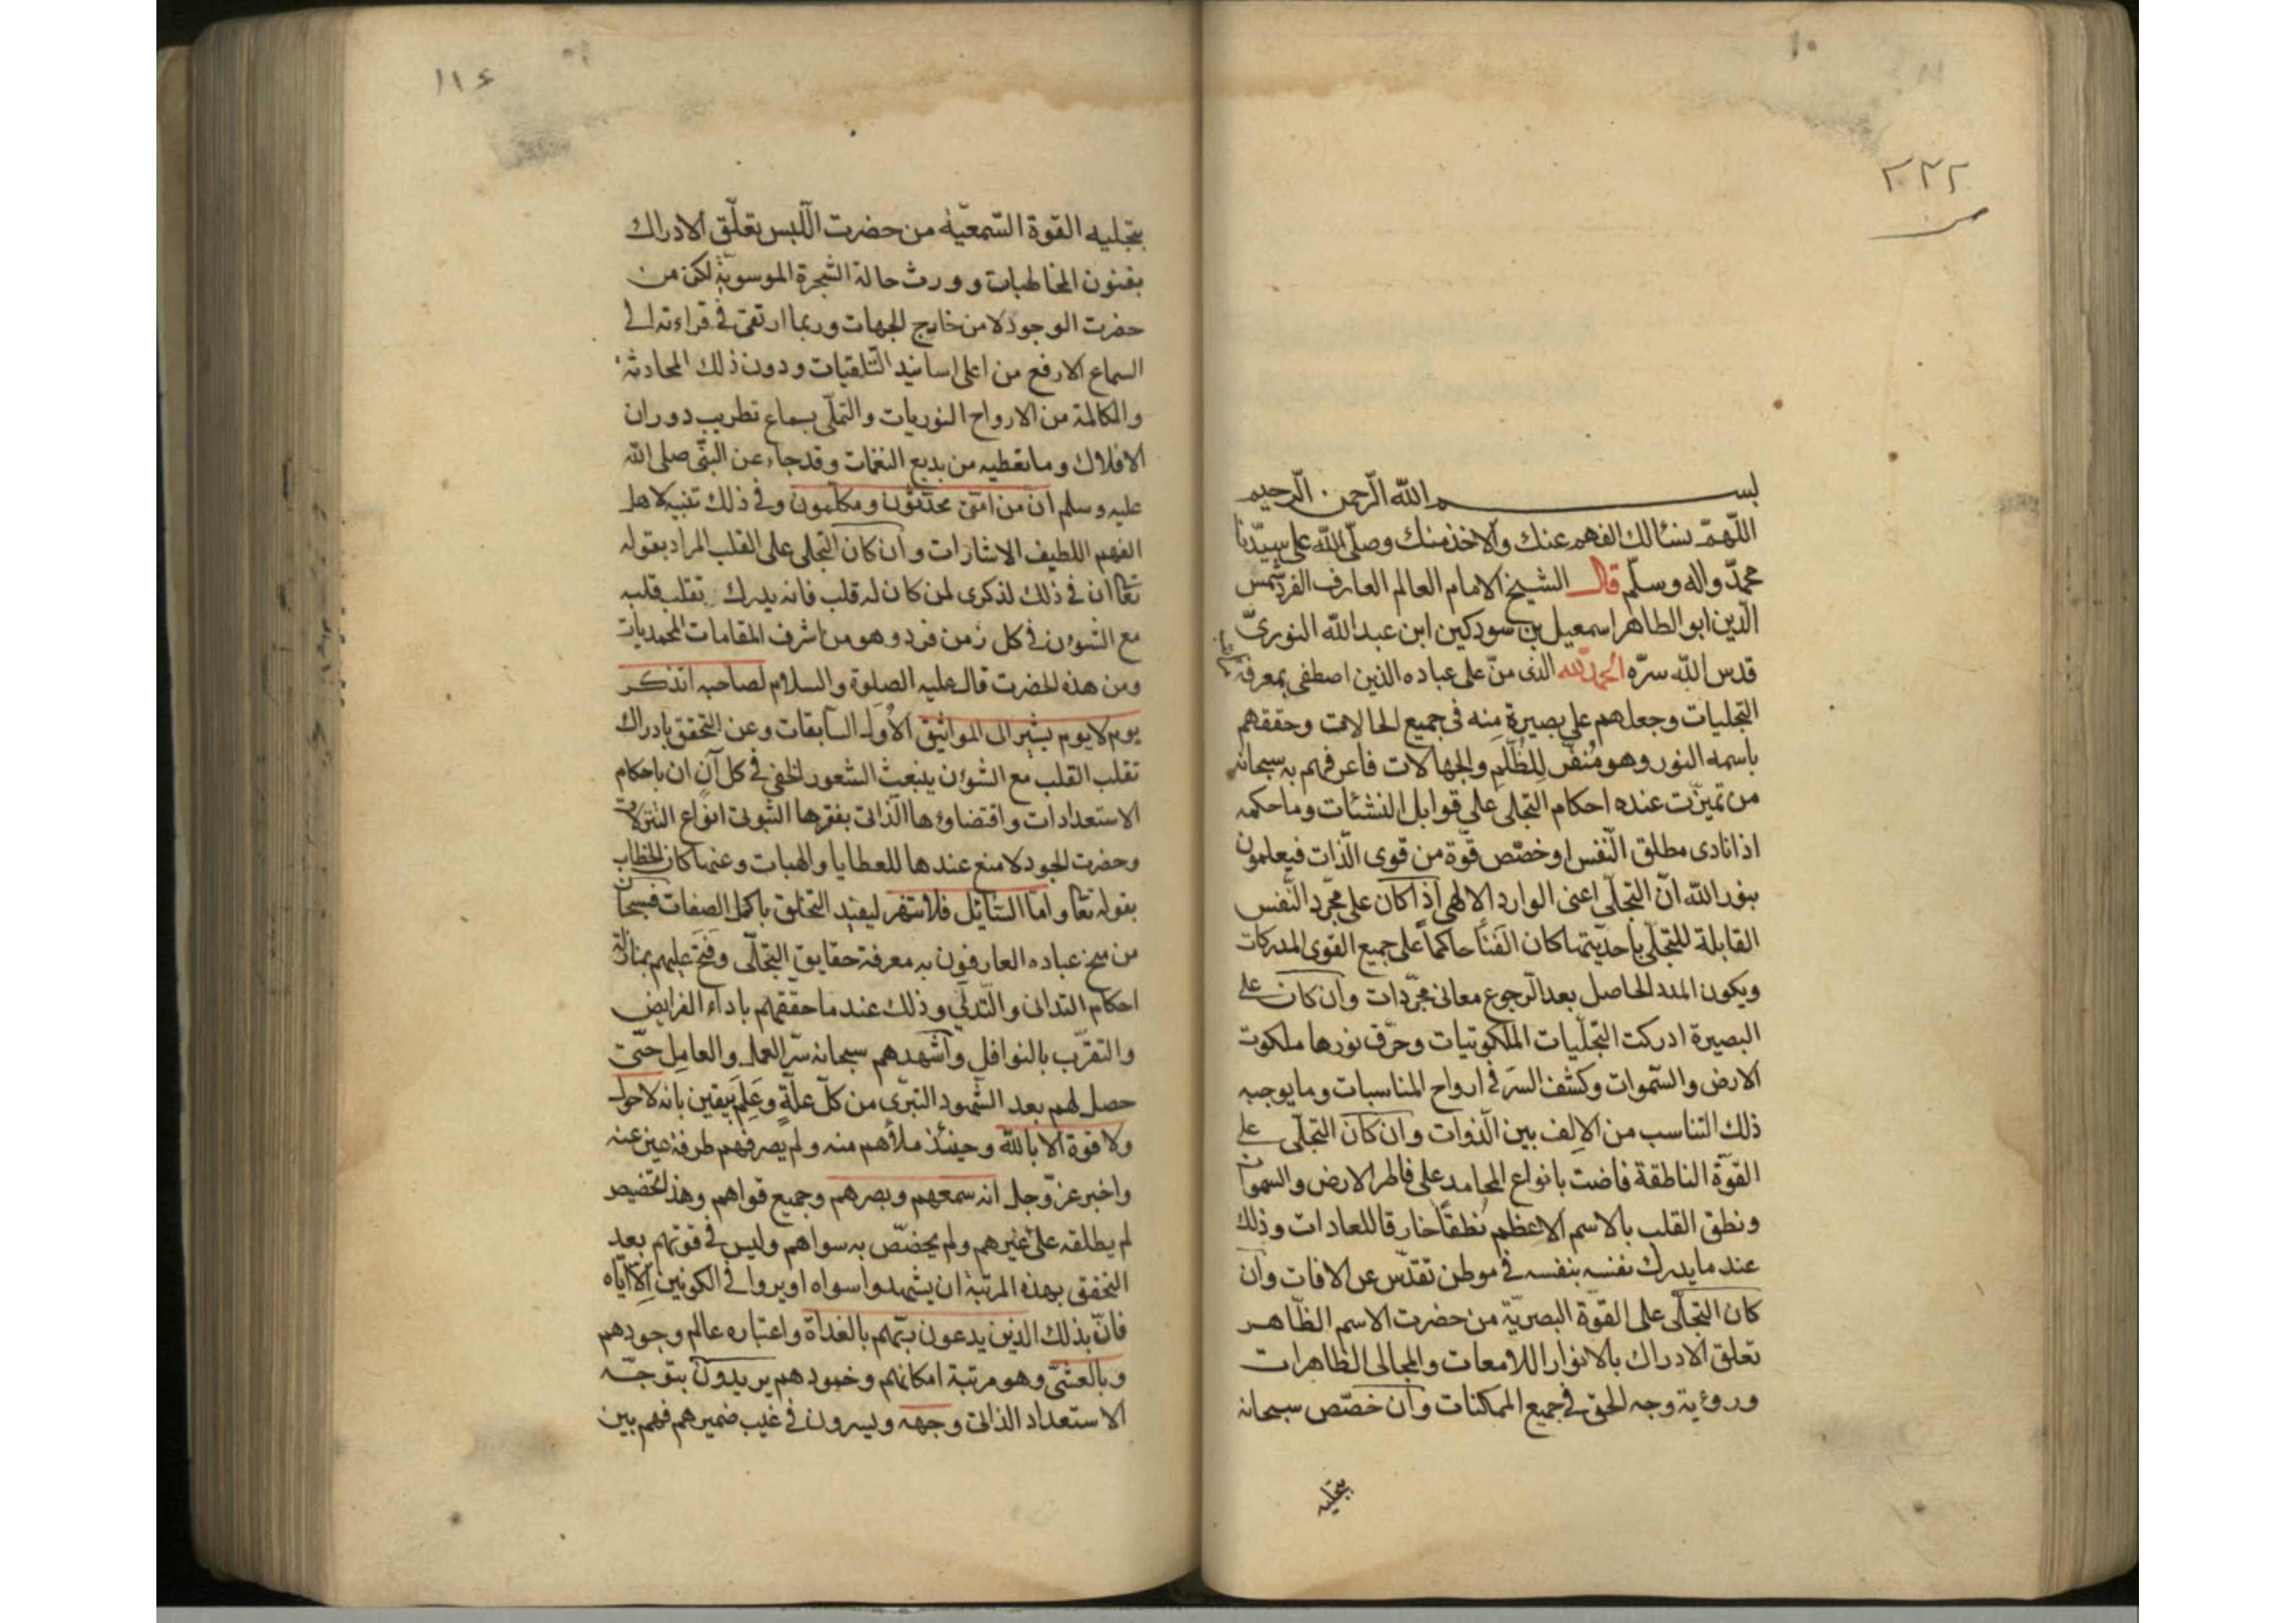 ١٠
٢٣٢
بســم الله الرّحمن الرّحيم
اللّهمّ نسئالك الفهم عنك والاخذ منك وصلّى الله على سيّدنا
محمّد واله وسلّم قال الشيخ الامام العالم العارف الفرد شمس
الدّين ابو الطاهر اسمعيل بن سودكين ابن عبد الله النوريّ
قدس الله سرّه الحمد لله الذى منّ على عباده الذين اصطفى بمعرفة
التجليات وجعلهم على بصيرة منه فى جميع الحالات وحققهم
باسمه النور وهو مُنفّر للظُلَم والجهالات فاعرفهم به سبحانه
من تميّزت عنده احكام التجلى على قوابل النشئات وما حكمه
اذا نادى مطلق النّفس او خصّص قوّة من قوى الذّات فيعلمون
بنور الله انّ التجلّى اعنى الوارد الالهى اذا كان على مجرّد النّفس
القابلة للتجلّى باحديّتها كان الفَنَأ حاكماً على جميع القوى المدركات
ويكون المدد الحاصل بعد الرّجوع معانى مجرّدات وان كان على
البصيرة ادركت التجلّيات الملكوتيات وخرّق نورها ملكوت
الارض والسّموات وكشف السرّ فى ارواح المناسبات وما يوجبه
ذلك التناسب من الاِلِف بين الذّوات وان كان التجلّى على
القوّة الناطقة فاضت بانواع المحامد على فاطر الارض والسموات
ونطق القلب بالاسم الاعظم نُطقاً خارقا للعادات وذلك
عند ما يدرك نفسه بنفسه فى موطن تقدّس عن الافات وان
كان التجلّى على القوّة البصريّة من حضرت الاسم الظّاهر
تعلق الادراك بالانوار اللامعات والمجالى الظاهرات
وروءية وجه الحق فى جميع الممكنات وان خصّص سبحانه
بتجليه
١١٤
بتجليه القوة السّمعيّة من حضرت اللّبس تعلّق الادراك
بفنون المخاطبات وورث حالة الشجرة الموسويّة لكن من
حضرت الوجود لا من خارج الجهات وربما ارتقى فى قراءته الى
السماع الارفع من اعلى اسانيد التّلقيات ودون ذلك المحادثة
والمكالمة من الارواح النوريات والتملّى بسماع تطريب دوران
الافلاك وما تعطيه من بديع النغمات وقد جاء عن النبىّ صلى الله
عليه وسلم ان من امّتى محدّثون ومكلّمون وفى ذلك تنبيه لاهل
الفهم اللطيف الاشارات وان كان التجلى على القلب المراد بقوله
تعا ان فى ذلك لذكرى لمن كان له قلب فانه يدرك تقلب قلبه
مع الشؤن فى كل زمن فرد وهو من اشرف المقامات المحمديات
ومن هذه الحضرت قال عليه الصلوة والسلام لصاحبه اتذكر
يوم لا يوم يشير الى المواثيق الاُوَل السابقات وعن التحقق بادراك
تقلب القلب مع الشؤن ينبعث الشعور الخفى فى كل آن ان باحكام
الاستعدادات واقتضاؤها الذّاتى بفقرها الثبوتى انواع التنزلات
وحضرت الجود لا منع عندها للعطايا والهبات وعنها كان الخطاب
بقوله تعا واما السّائل فلا تنهر ليفيد التخلق باكمل الصفات فسبحان
من منح عباده العارفون به معرفة حقايق التجلّى وفَتَحَ عليهم بمنازلة
احكام التدانى والتّدلّى وذلك عند ما حققهم باداء الفرايض
والتقرّب بالنوافل واشهدهم سبحانه سرّ العمل والعامِل حتّى
حصل لهم بعد الشّهود التبرّى من كلّ علّةٍ وعَلِمَ بيقين بانه لا حول
ولا قوة الا بالله وحينئذ ملأهم منه ولم يصرفهم طرفة عين عنه
واخبر عزّ وجل انه سمعهم وبصرهم وجميع قواهم وهذا تخصيص
لم يطلقه على غيرهم ولم يخصّص به سواهم وليس فى قوتهم بعد
التحقق بهذه المرتبة ان يشهدوا سواه او يروا فى الكونين اِلّا ايّاه
فانّ بذلك الذين يدعون ربّهم بالغداة واعتباره عالم وجودهم
وبالعشىّ وهو مرتبة امكانهم وخمودهم يريدون بتوجّه
الاستعداد الذاتى وجهه ويسرون فى غيب ضميرهم فهم بين